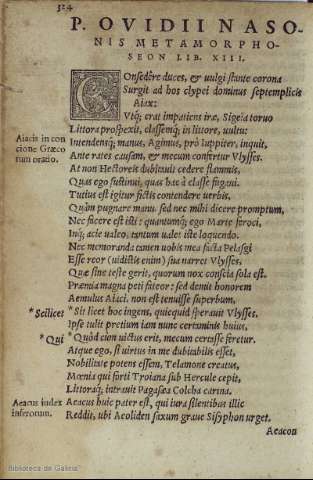 324
P. OVIDII NASO-
NIS METAMORPHO-
SEON LIB. XIII.
COnsedêre duces, & uulgi stante corona
Surgit ad hos clypei dominus septemplicis
Aiax:
Vtq́; erat impatiens iræ, Sigeia toruo
Aiacis in con
cione Græco
rum oratio.
Littora prospexit, classemq́; in littore, uultu:
Intendensq́; manus, Agimus, prô Iuppiter, inquit,
Ante rates causam, & mecum confertur Vlysses.
At non Hectoreis dubitauit cedere flammis,
Quas ego sustinui, quas hac à classe fugaui.
Tutius est igitur fictis contendere uerbis,
Quàm pugnare manu. sed nec mihi dicere promptum,
Nec facere est isti: quantumq́; ego Marte feroci,
Inq́; acie ualeo, tantum ualet iste loquendo.
Nec memoranda tamen uobis mea facta Pelasgi
Esse reor (uidistis enim) sua narret Vlysses,
Quæ sine teste gerit, quorum nox conscia sola est.
Præmia magna peti fateor: sed demit honorem
Aemulus Aiaci. non est tenuisse superbum,
*Scilicet
*Sit licet hoc ingens, quicquid sperauit Vlysses.
Ipse tulit pretium iam nunc certaminis huius,
*Qui
*Quòd cùm uictus erit, mecum certasse feretur.
Atque ego, si uirtus in me dubitabilis esset,
Nobilitate potens essem, Telamone creatus,
Mœnia qui forti Troiana sub Hercule cepit,
Littoraq́; intrauit Pagasæa Colcha carina.
Aeacus iudex
inferorum.
Aeacus huic pater est, qui iura silentibus illic
Reddit, ubi Aeoliden saxum graue Sisyphon urget.
Aeacon
Biblioteca de Galicia